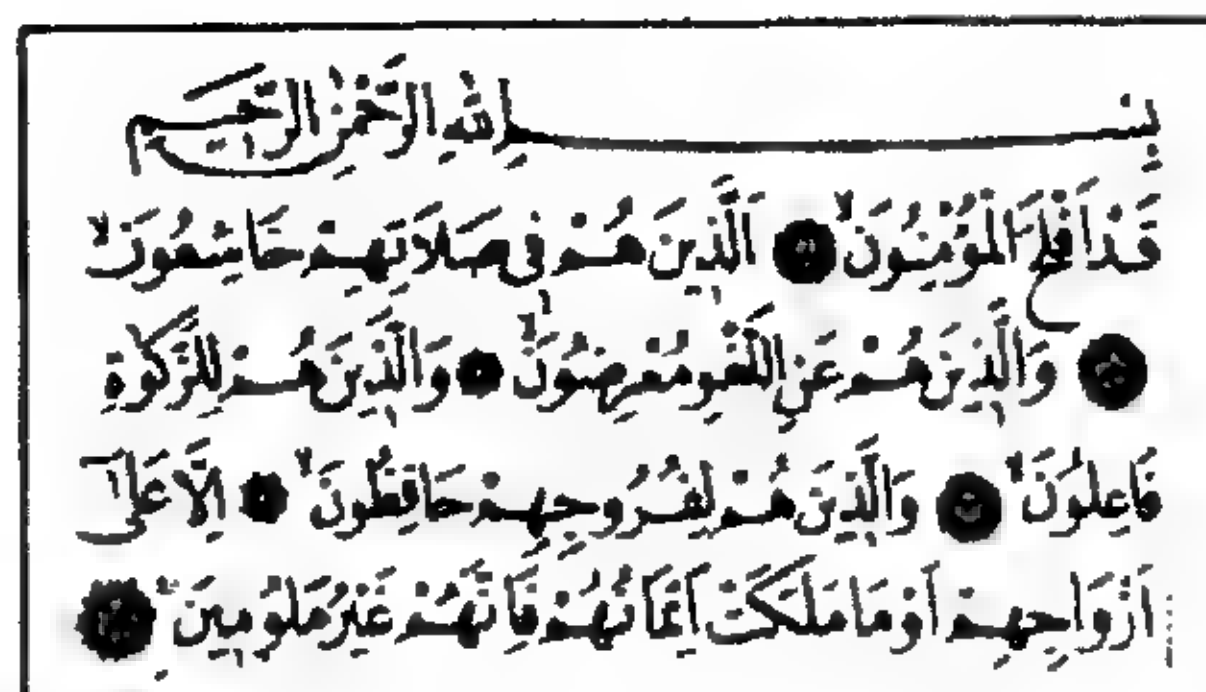 بِسْمِ اللهِ الرَّحْمٰنِ الرَّحِيمِ
قَدْ اَفْلَحَ الْمُؤْمِنُونَۙ اَلَّذِينَ هُمْ فِى صَلَاتِهِمْ خَاشِعُونَۙ
وَالَّذِينَ هُمْ عَنِ اللَّغْوِ مُعْرِضُونَۙ وَالَّذِينَ هُمْ لِلزَّكٰوةِ
فَاعِلُونَۙ وَالَّذِينَ هُمْ لِفُرُوجِهِمْ حَافِظُونَۙ اِلَّا عَلٰٓى
اَزْوَاجِهِمْ اَوْ مَا مَلَكَتْ اَيْمَانُهُمْ فَاِنَّهُمْ غَيْرُ مَلُومِينَۚ